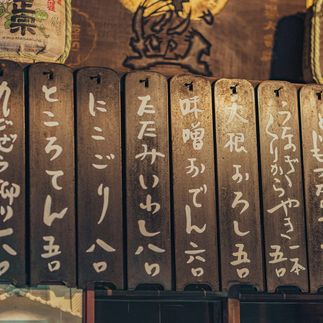 正宗
うなぎ
くりからやき 一本
大根おろし 五〇
味噌おでん 六〇
たたみいわし 八〇
にこごり 八〇
ところてん 五〇